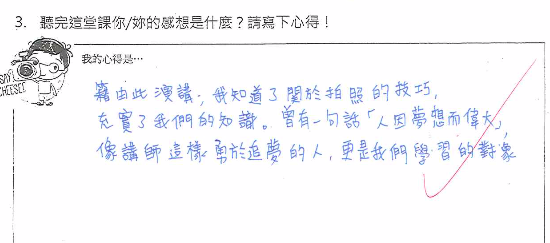 3. 聽完這堂課你/妳的感想是什麼？請寫下心得！
我的心得是…
SAY CHEESE!
藉由此演講，我知道了關於拍照的技巧，
充實了我們的知識。曾有一句話「人因夢想而偉大」，
像講師這樣勇於追夢的人，更是我們學習的對象